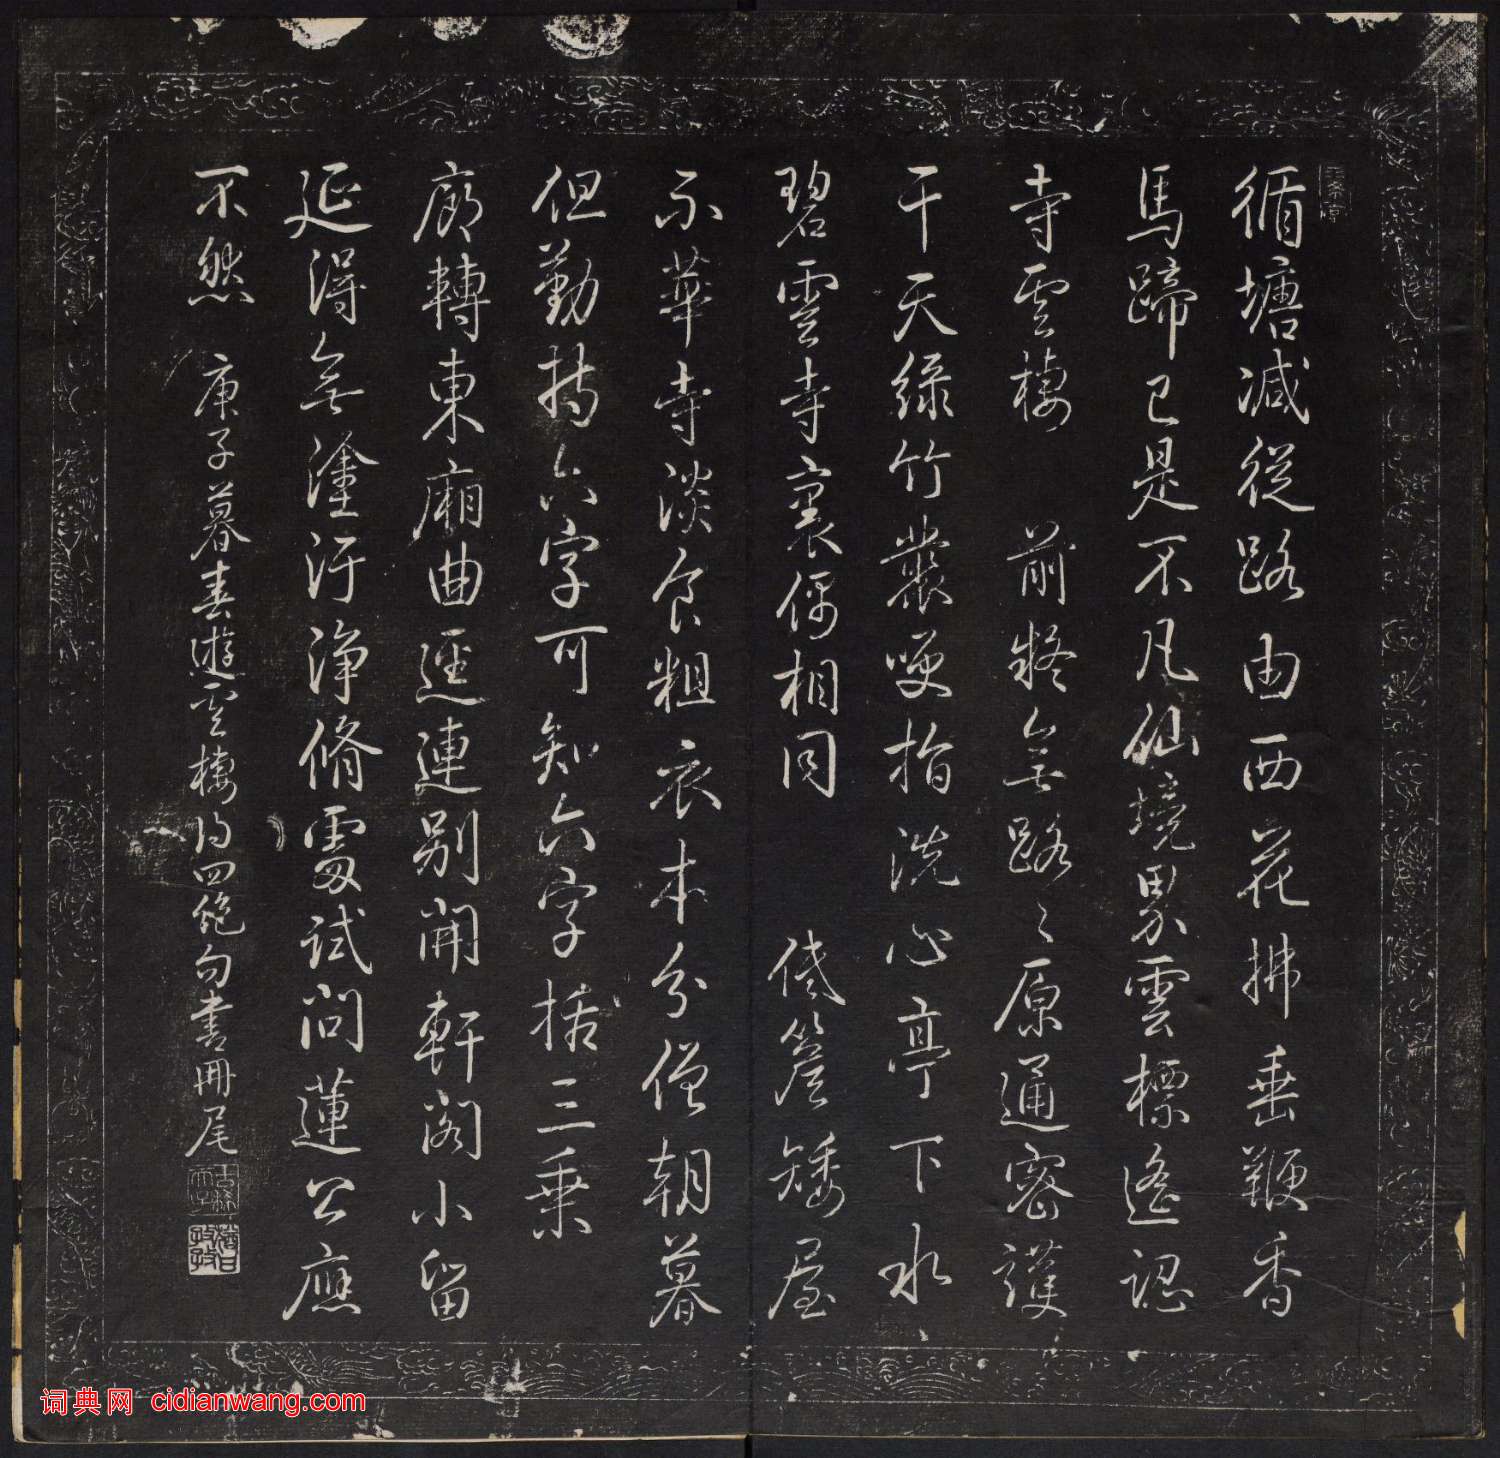 循塘減從路由西花拂垂鞭香
馬蹄已是不凡仙境界雲標遙認
寺雲棲 前疑無路〻原通密護
干天綠竹叢咲指洗心亭下水
碧雲寺裏偶相同 低簷矮屋
不華寺淡食粗衣本分僧朝暮
但勤持六字可知六字括三乘
廊轉東廂曲逕連別開軒閣小留
延得無塗汙淨脩處試問蓮公應
不然 庚子暮春遊雲棲得四絕句書冊尾
古稀天子
猶日孜孜
词典网 cidianwang.com